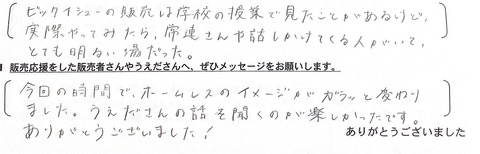 ビックイシューの販売は学校の授業で見たことがあるけど、
実際やってみたら、常連さんや話しかけてくる人がいて、
とても明るい場だった。
販売応援をした販売者さんやうえださんへ、ぜひメッセージをお願いします。
今回の時間で、ホームレスのイメージがガラッと変わり
ました。うえださんの話を聞くのが楽しかったです。
ありがとうございました!
ありがとうございました